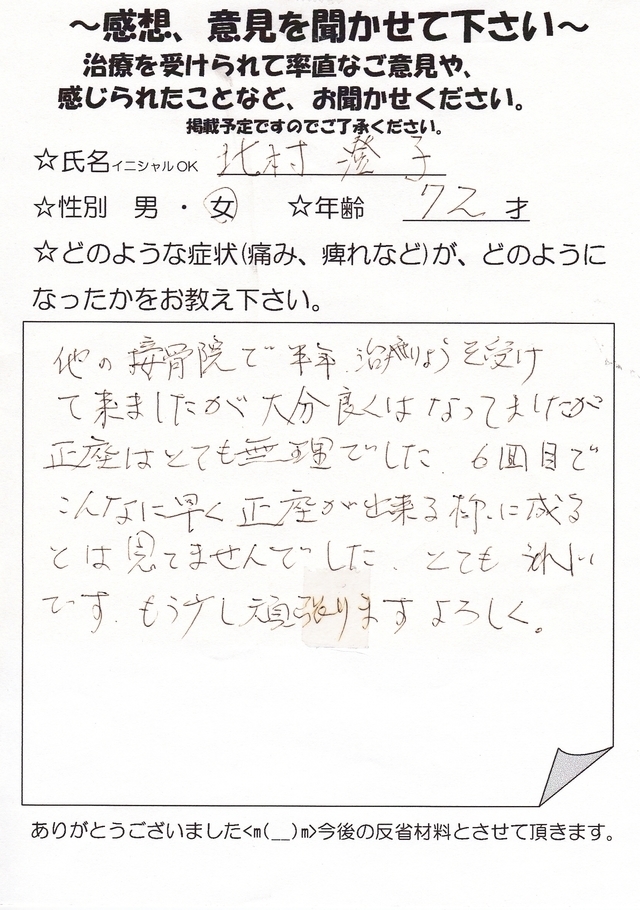 ～感想、意見を聞かせて下さい～
治療を受けられて率直なご意見や、
感じられたことなど、お聞かせください。
掲載予定ですのでご了承ください。
☆氏名イニシャルOK 北村 澄子
☆性別 男 ・ 女 ☆年齢 72 才
☆どのような症状(痛み、痺れなど)が、どのように
なったかをお教え下さい。
他の接骨院で半年治療りようを受け
て来ましたが大分良くはなってましたが
正座はとても無理でした。6回目で
こんなに早く正座が出来る様に成る
とは思てませんでした。とても うれしい
です。もう少し頑張ります よろしく。
ありがとうございました<m(__)m>今後の反省材料とさせて頂きます。